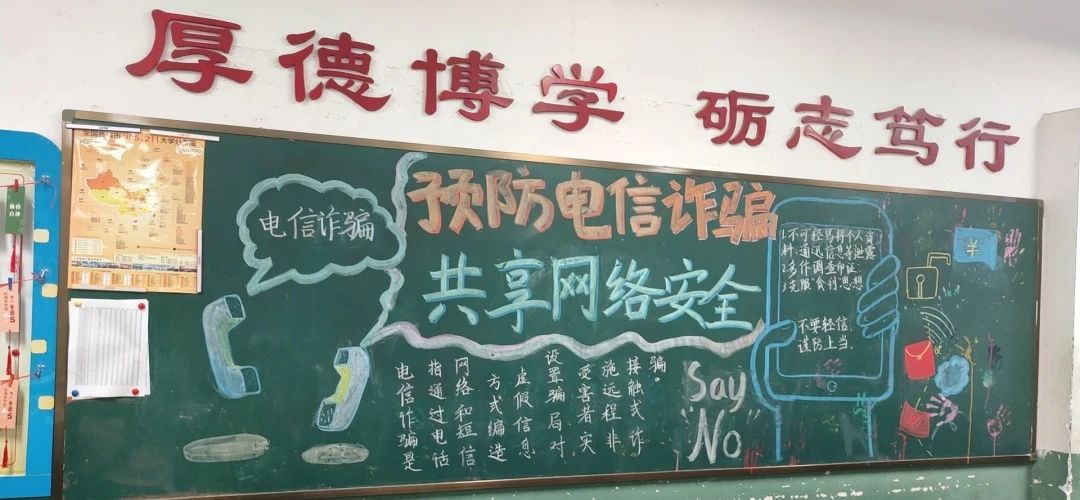 厚德博学 砺志笃行
电信诈骗
预防电信诈骗
共享网络安全
电信诈骗是
指通过电话
网络和短信
方式编造
虚假信息
设置骗局对
受害者实
施远程非
接触式诈
骗。
Say
"No"
1.不可轻易将个人资
料、通讯信息等泄露
2.多作调查印证
3克服贪利思想
不要轻信,
谨防上当.
¥
985
985